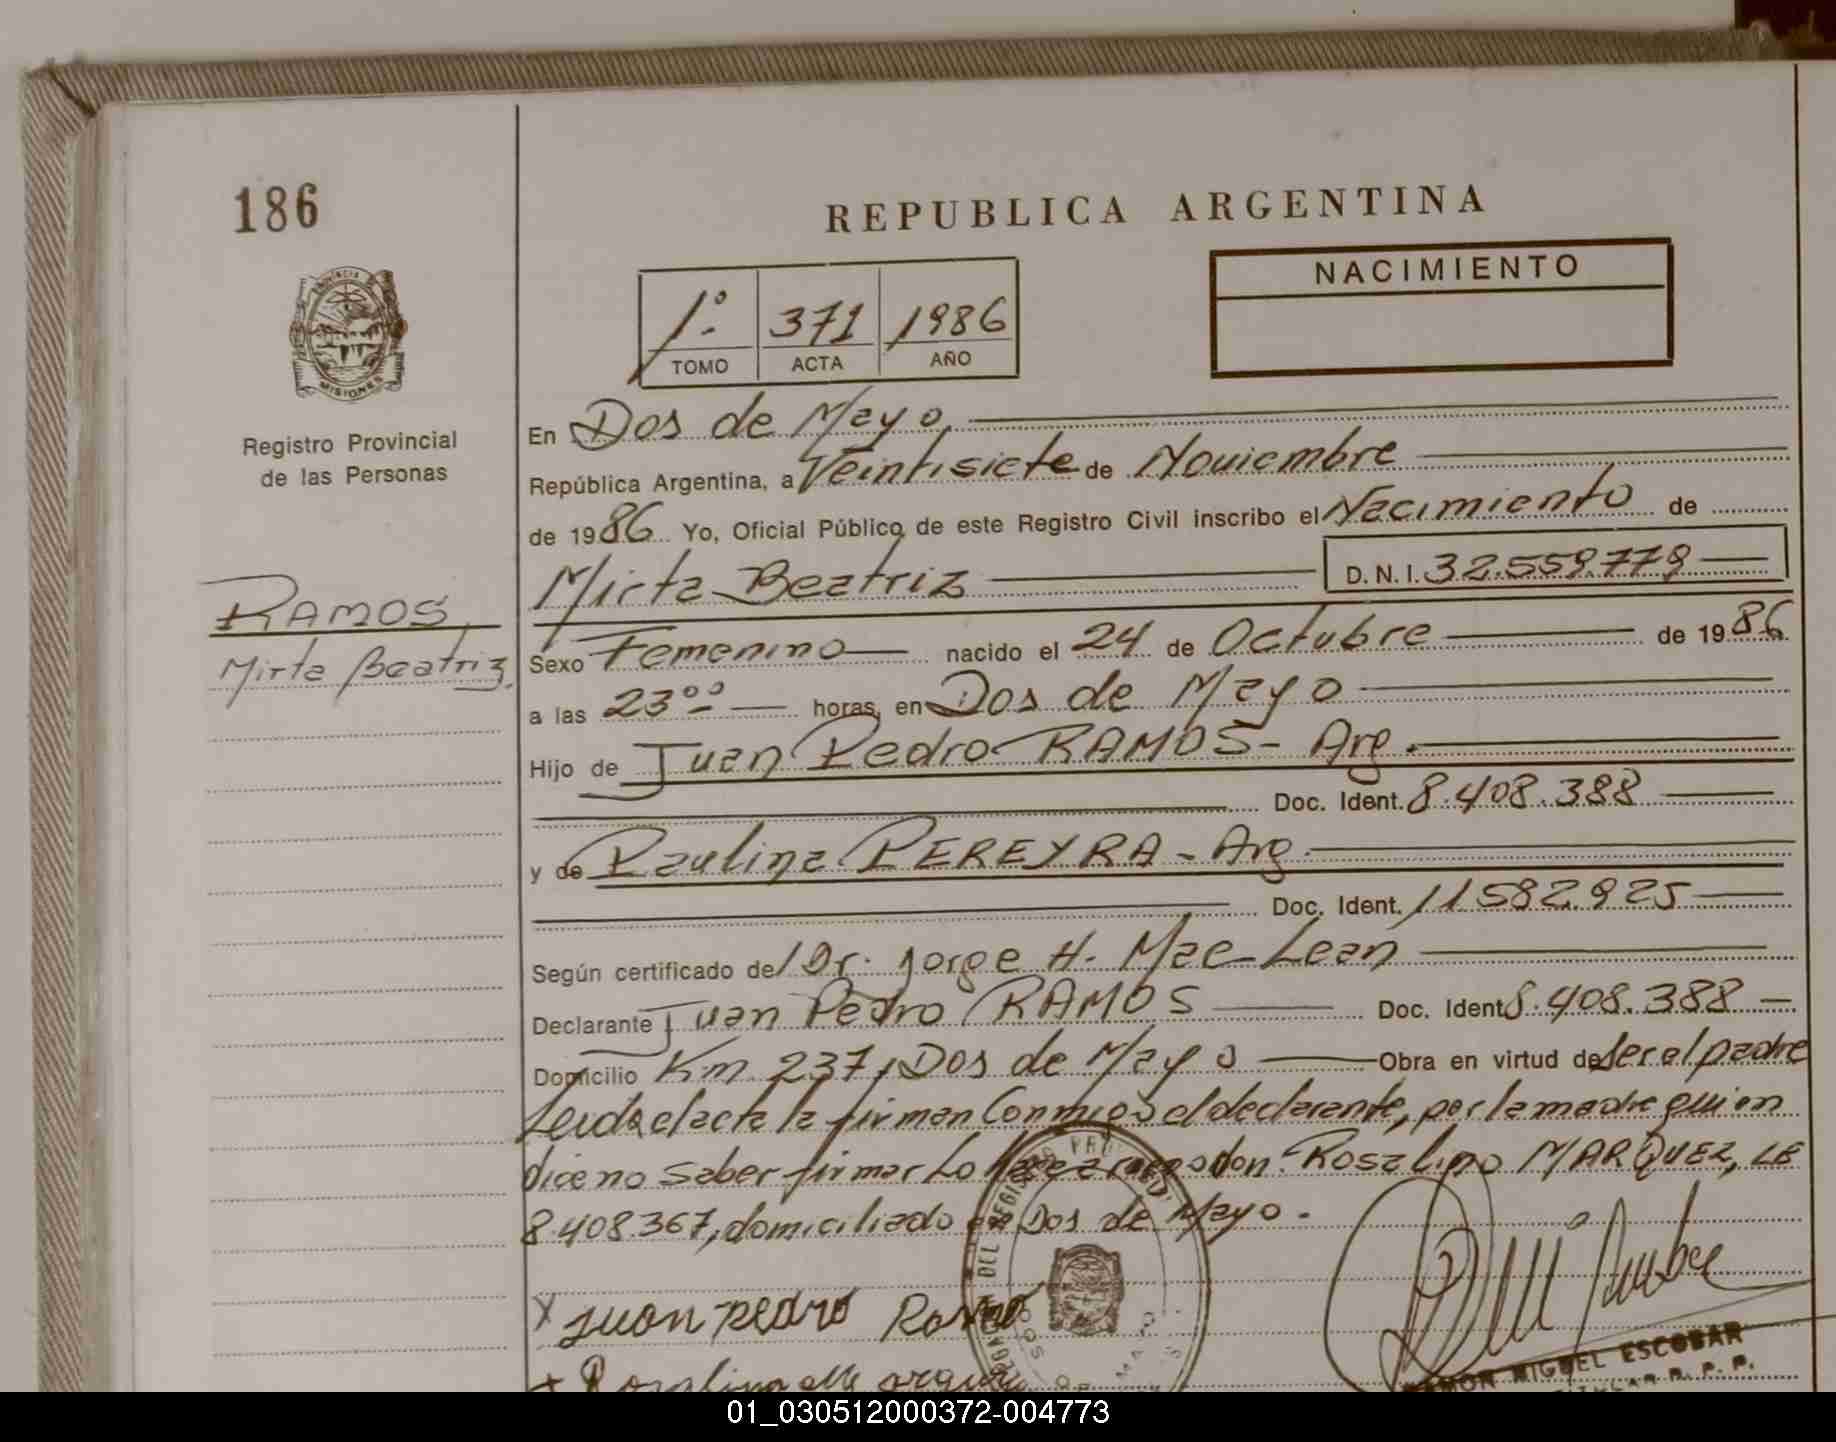 186
REPUBLICA ARGENTINA
NACIMIENTO
1º.- 371 1986
TOMO ACTA AÑO
PROVINCIA DE
MISIONES
Registro Provincial
de las Personas
En Dos de Mayo
República Argentina, a Veintisiete de Noviembre
de 1986 Yo, Oficial Público de este Registro Civil inscribo el Nacimiento de
Mirta Beatriz D.N.I. 32.559.779
RAMOS,
Mirta Beatriz.
Sexo Femenino nacido el 24 de Octubre de 1986
a las 23ºº horas, en Dos de Mayo
Hijo de Juan Pedro RAMOS - Arg.
Doc. Ident. 8.408.388
y de Paulina PEREYRA - Arg.
Doc. Ident. 11.582.925
Según certificado de Dr. Jorge H. Mac Lean
Declarante Juan Pedro RAMOS Doc. Ident. 8.408.388
Domicilio Km. 237, Dos de Mayo Obra en virtud de ser el padre
Leida el acta la firman Conmigo el declarante, por la madre quien
dice no saber firmar Lo hace a ruego don Rosalino MARQUEZ, LE
8.408.367, domiciliado en Dos de Mayo.-
x Juan pedro Ramos
RAMON MIGUEL ESCOBAR
R. P. P.
01_030512000372-004773